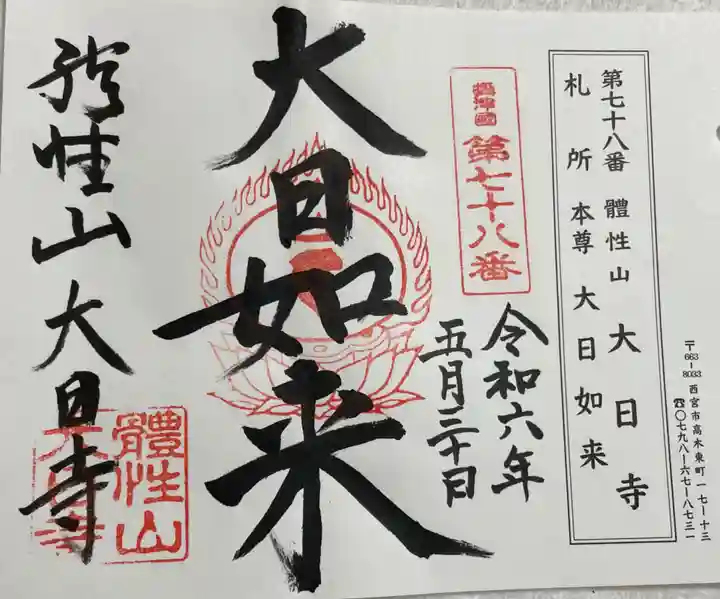 第七十八番 體性山 大日寺
札所 本尊 大日如来
〒663-8033 西宮市高木東町一七ー十三
☎〇七九八ー六七ー八七三一
攝津國 第七十八番
令和六年
五月三十日
大日如来
體性山 大日寺
體性山
大日寺